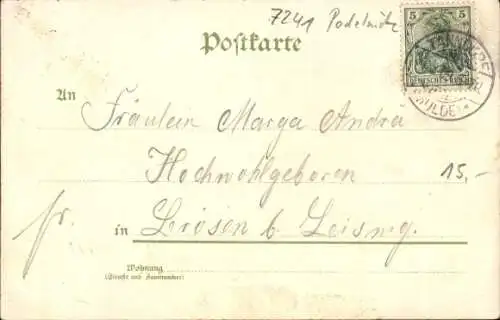 7241 Podelwitz
5 5
DEUTSCHES REICH
Postkarte
An
Fräulein Marga Andra
Hochwohlgeboren
15,-
fr.
in Brösen b. Leisnig.
Wohnung
(Straße und Hausnummer)